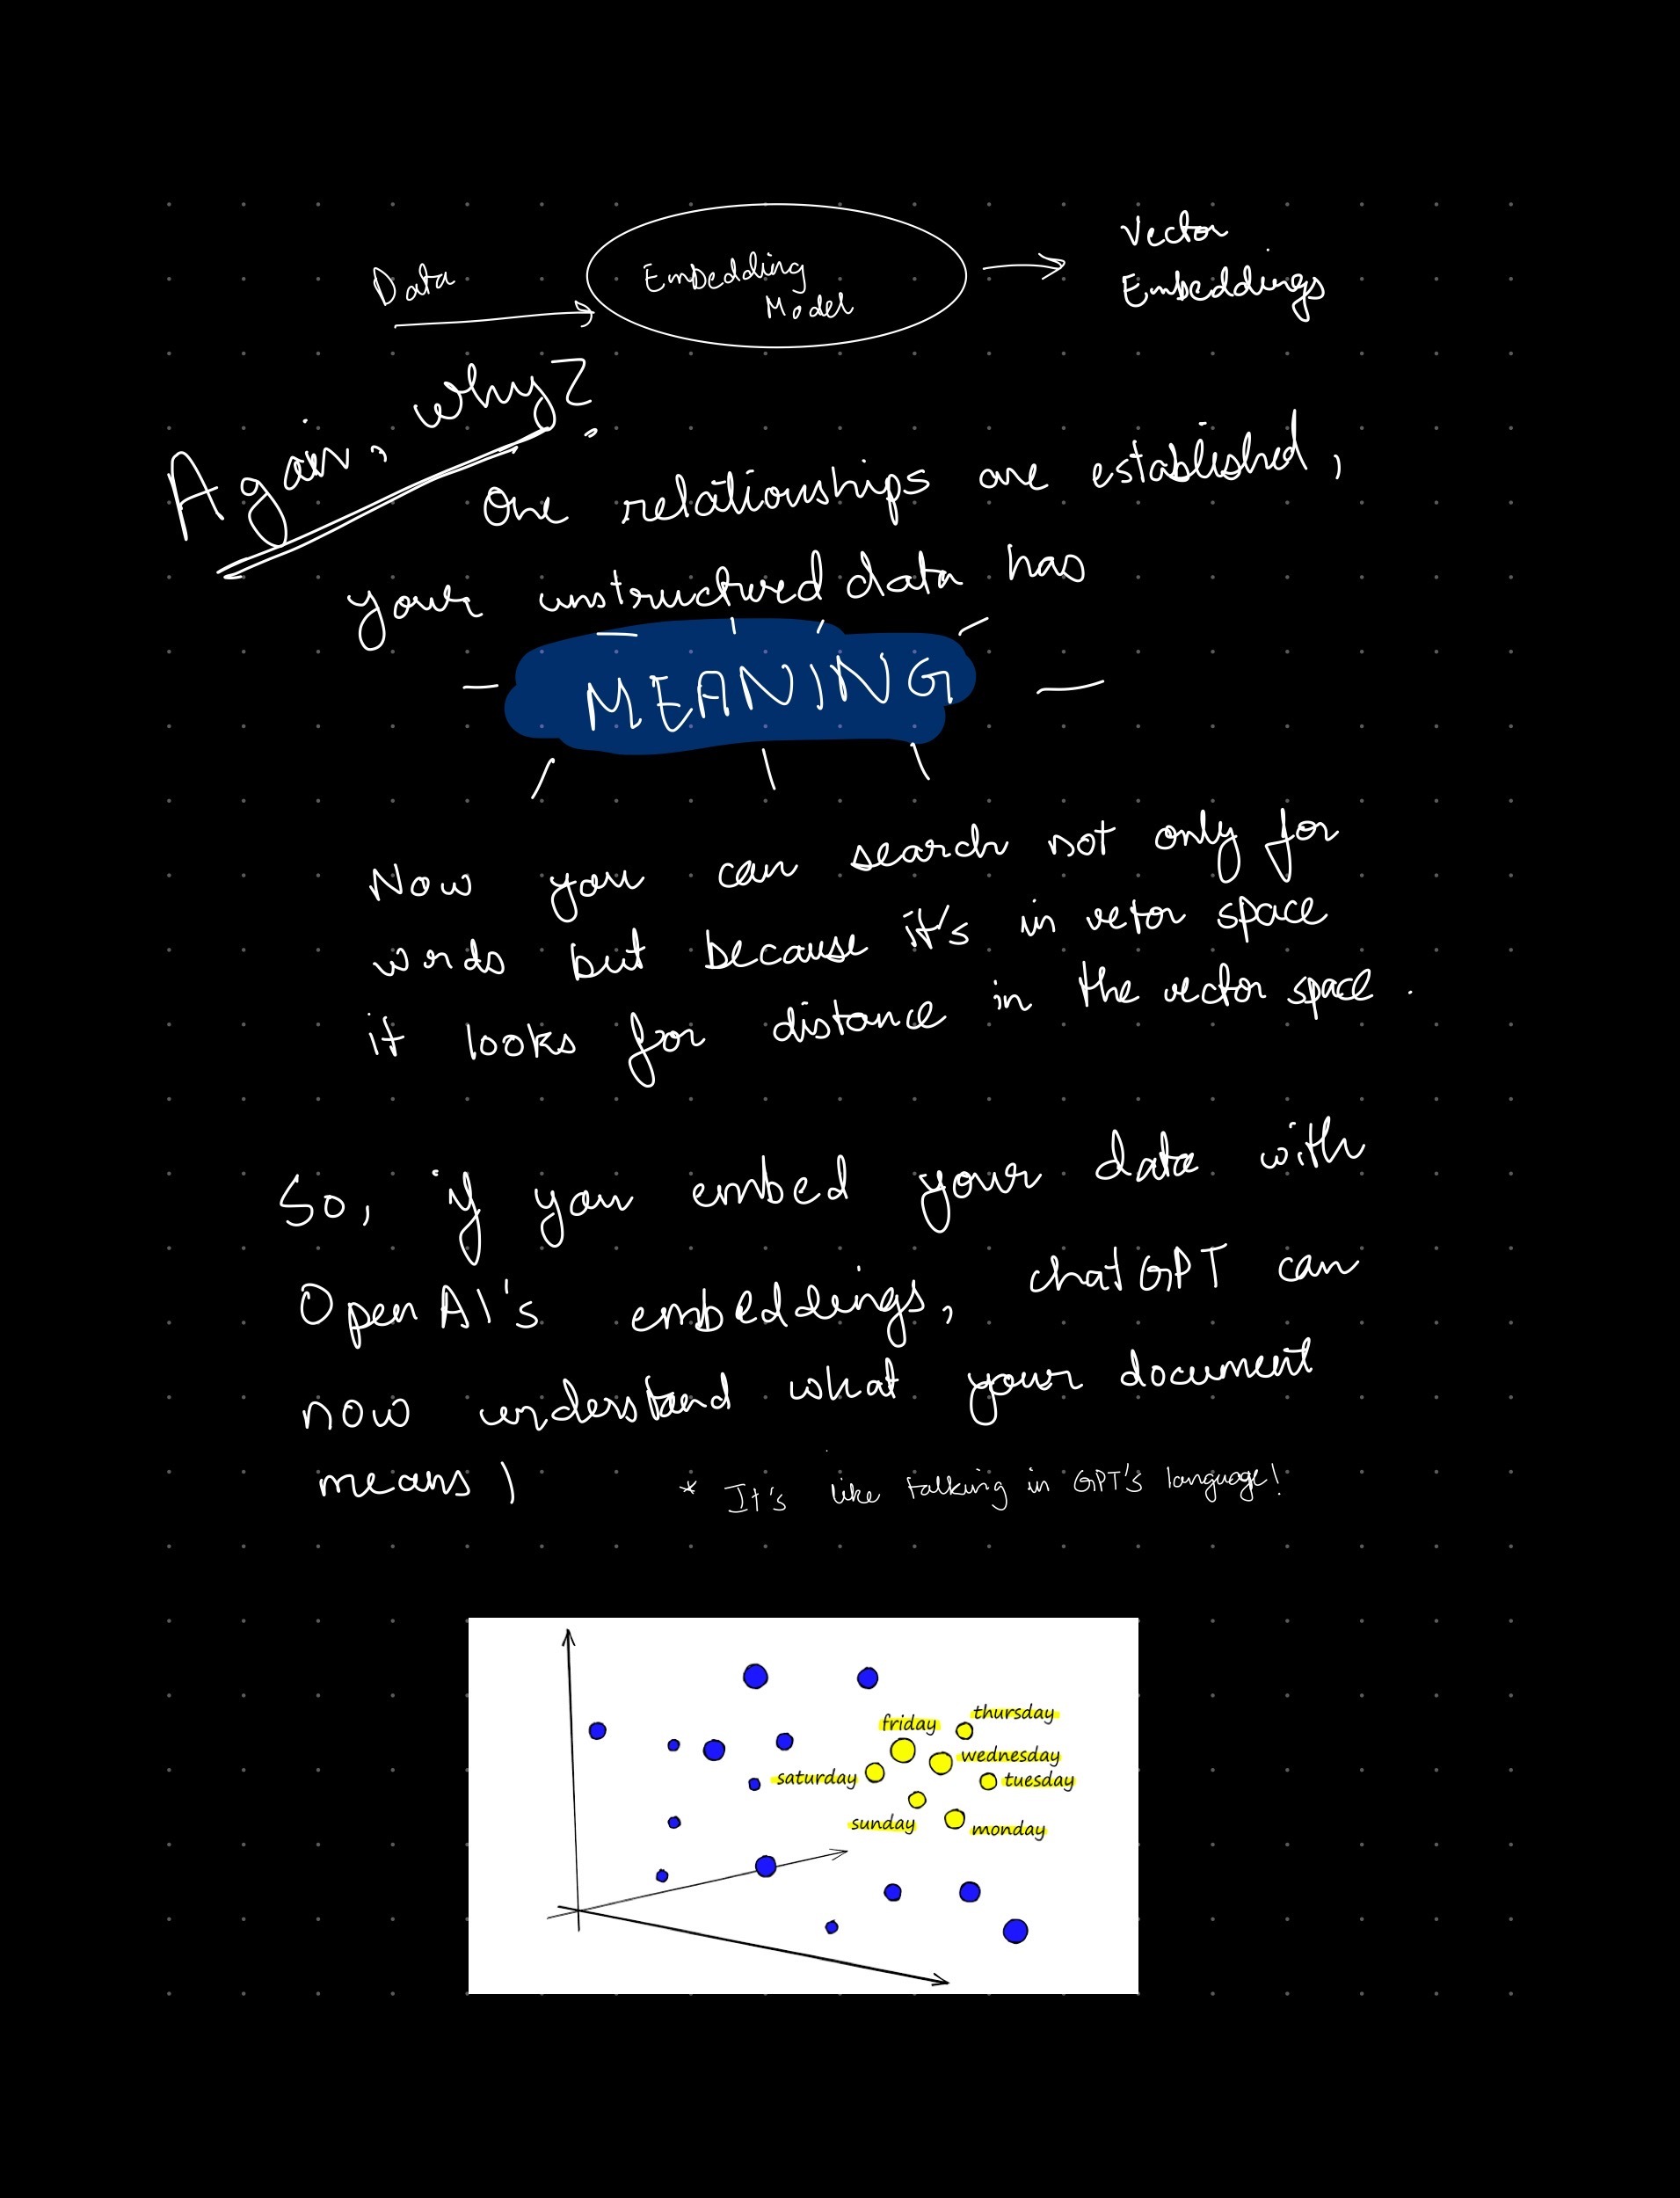 Data
Embedding
Model
Vector
Embeddings
Again, why?
One relationships are established,
your unstructured data has
MEANING
Now you can search not only for
words but because it's in vetor space
it looks for distance in the vector space.
So, if you embed your data with
OpenAI's embeddings, chatGPT can
now understand what your document
means)
* It's like talking in GPT's language!
thursday
friday
wednesday
saturday
tuesday
sunday
monday